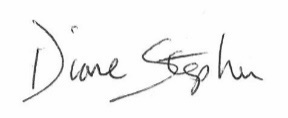 Diane Stephen